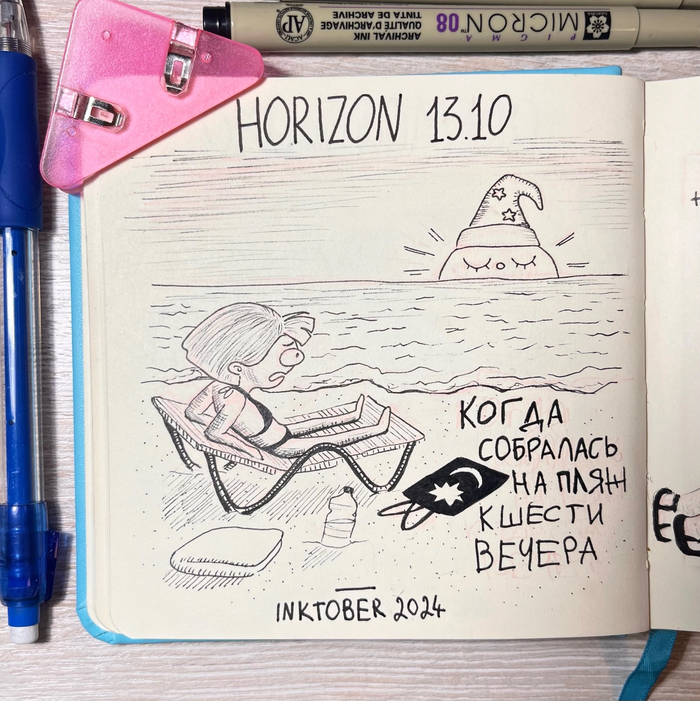 ARCHIVAL INK
QUALITÉ D'ARCHIVAGE
TINTA DE ARCHIVE
AP
PIGMA
MICRON™ 08
HORIZON 13.10
КОГДА
СОБРАЛАСЬ
НА ПЛЯЖ
К ШЕСТИ
ВЕЧЕРА
INKTOBER 2024